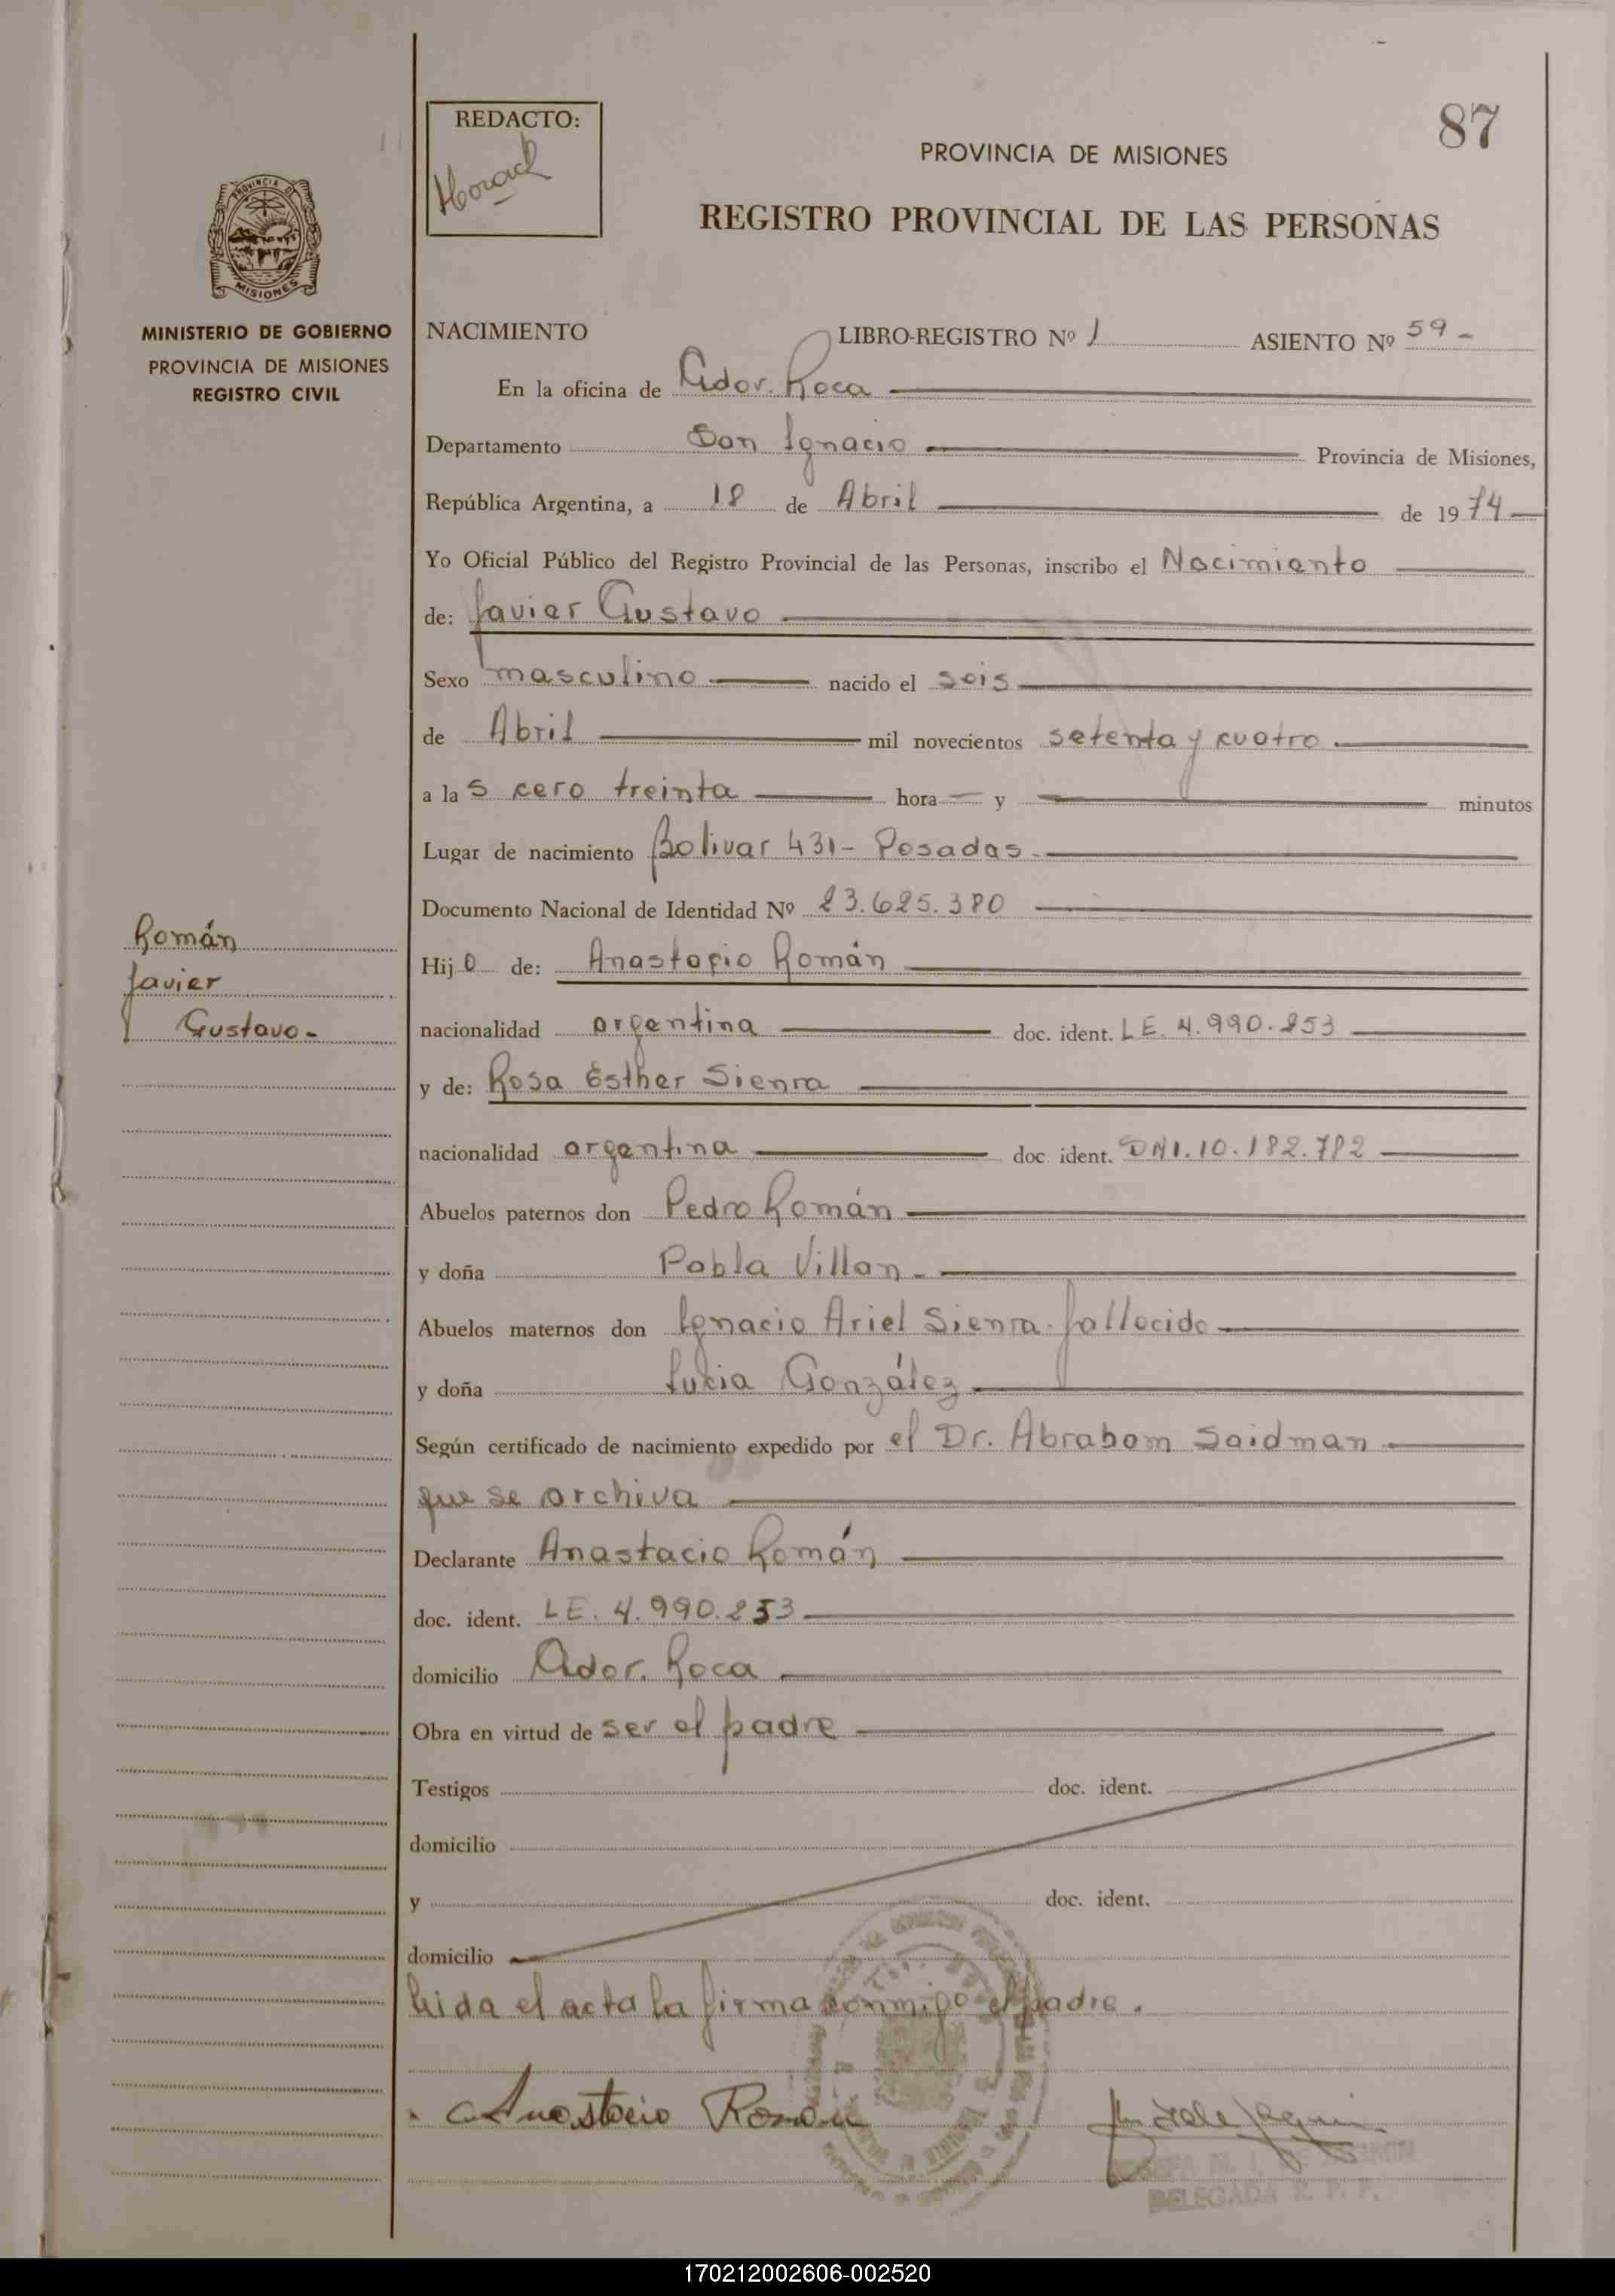 87
REDACTO:
PROVINCIA DE MISIONES
REGISTRO PROVINCIAL DE LAS PERSONAS
MISIONES
MINISTERIO DE GOBIERNO
PROVINCIA DE MISIONES
REGISTRO CIVIL
NACIMIENTO LIBRO-REGISTRO Nº 1 ASIENTO Nº 59-
En la oficina de Gdor. Roca
Departamento San Ignacio Provincia de Misiones,
República Argentina, a 18 de Abril de 1974
Yo Oficial Público del Registro Provincial de las Personas, inscribo el Nacimiento
de: Javier Gustavo
Sexo masculino nacido el seis
de Abril mil novecientos setenta y cuatro
a las cero treinta hora y minutos
Lugar de nacimiento Bolivar 431- Posadas
Documento Nacional de Identidad Nº 23.625.380
Román
Javier
Gustavo-
Hijo de: Anastacio Román
nacionalidad argentina doc. ident. LE. 4.990.253
y de: Rosa Esther Sienra
nacionalidad argentina doc. ident. DNI.10.182.782
Abuelos paternos don Pedro Román
y doña Pabla Villan
Abuelos maternos don Ignacio Ariel Sienra fallecido
y doña Lucia González
Según certificado de nacimiento expedido por el Dr. Abraham Saidman
que se archiva
Declarante Anastacio Román
doc. ident. LE. 4.990.253
domicilio Gdor. Roca
Obra en virtud de ser el padre
Testigos doc. ident.
domicilio
y doc. ident.
domicilio
Leida el acta la firma conmigo el padre.
Anastacio Román
DELEGADA R. P. P.
170212002606-002520